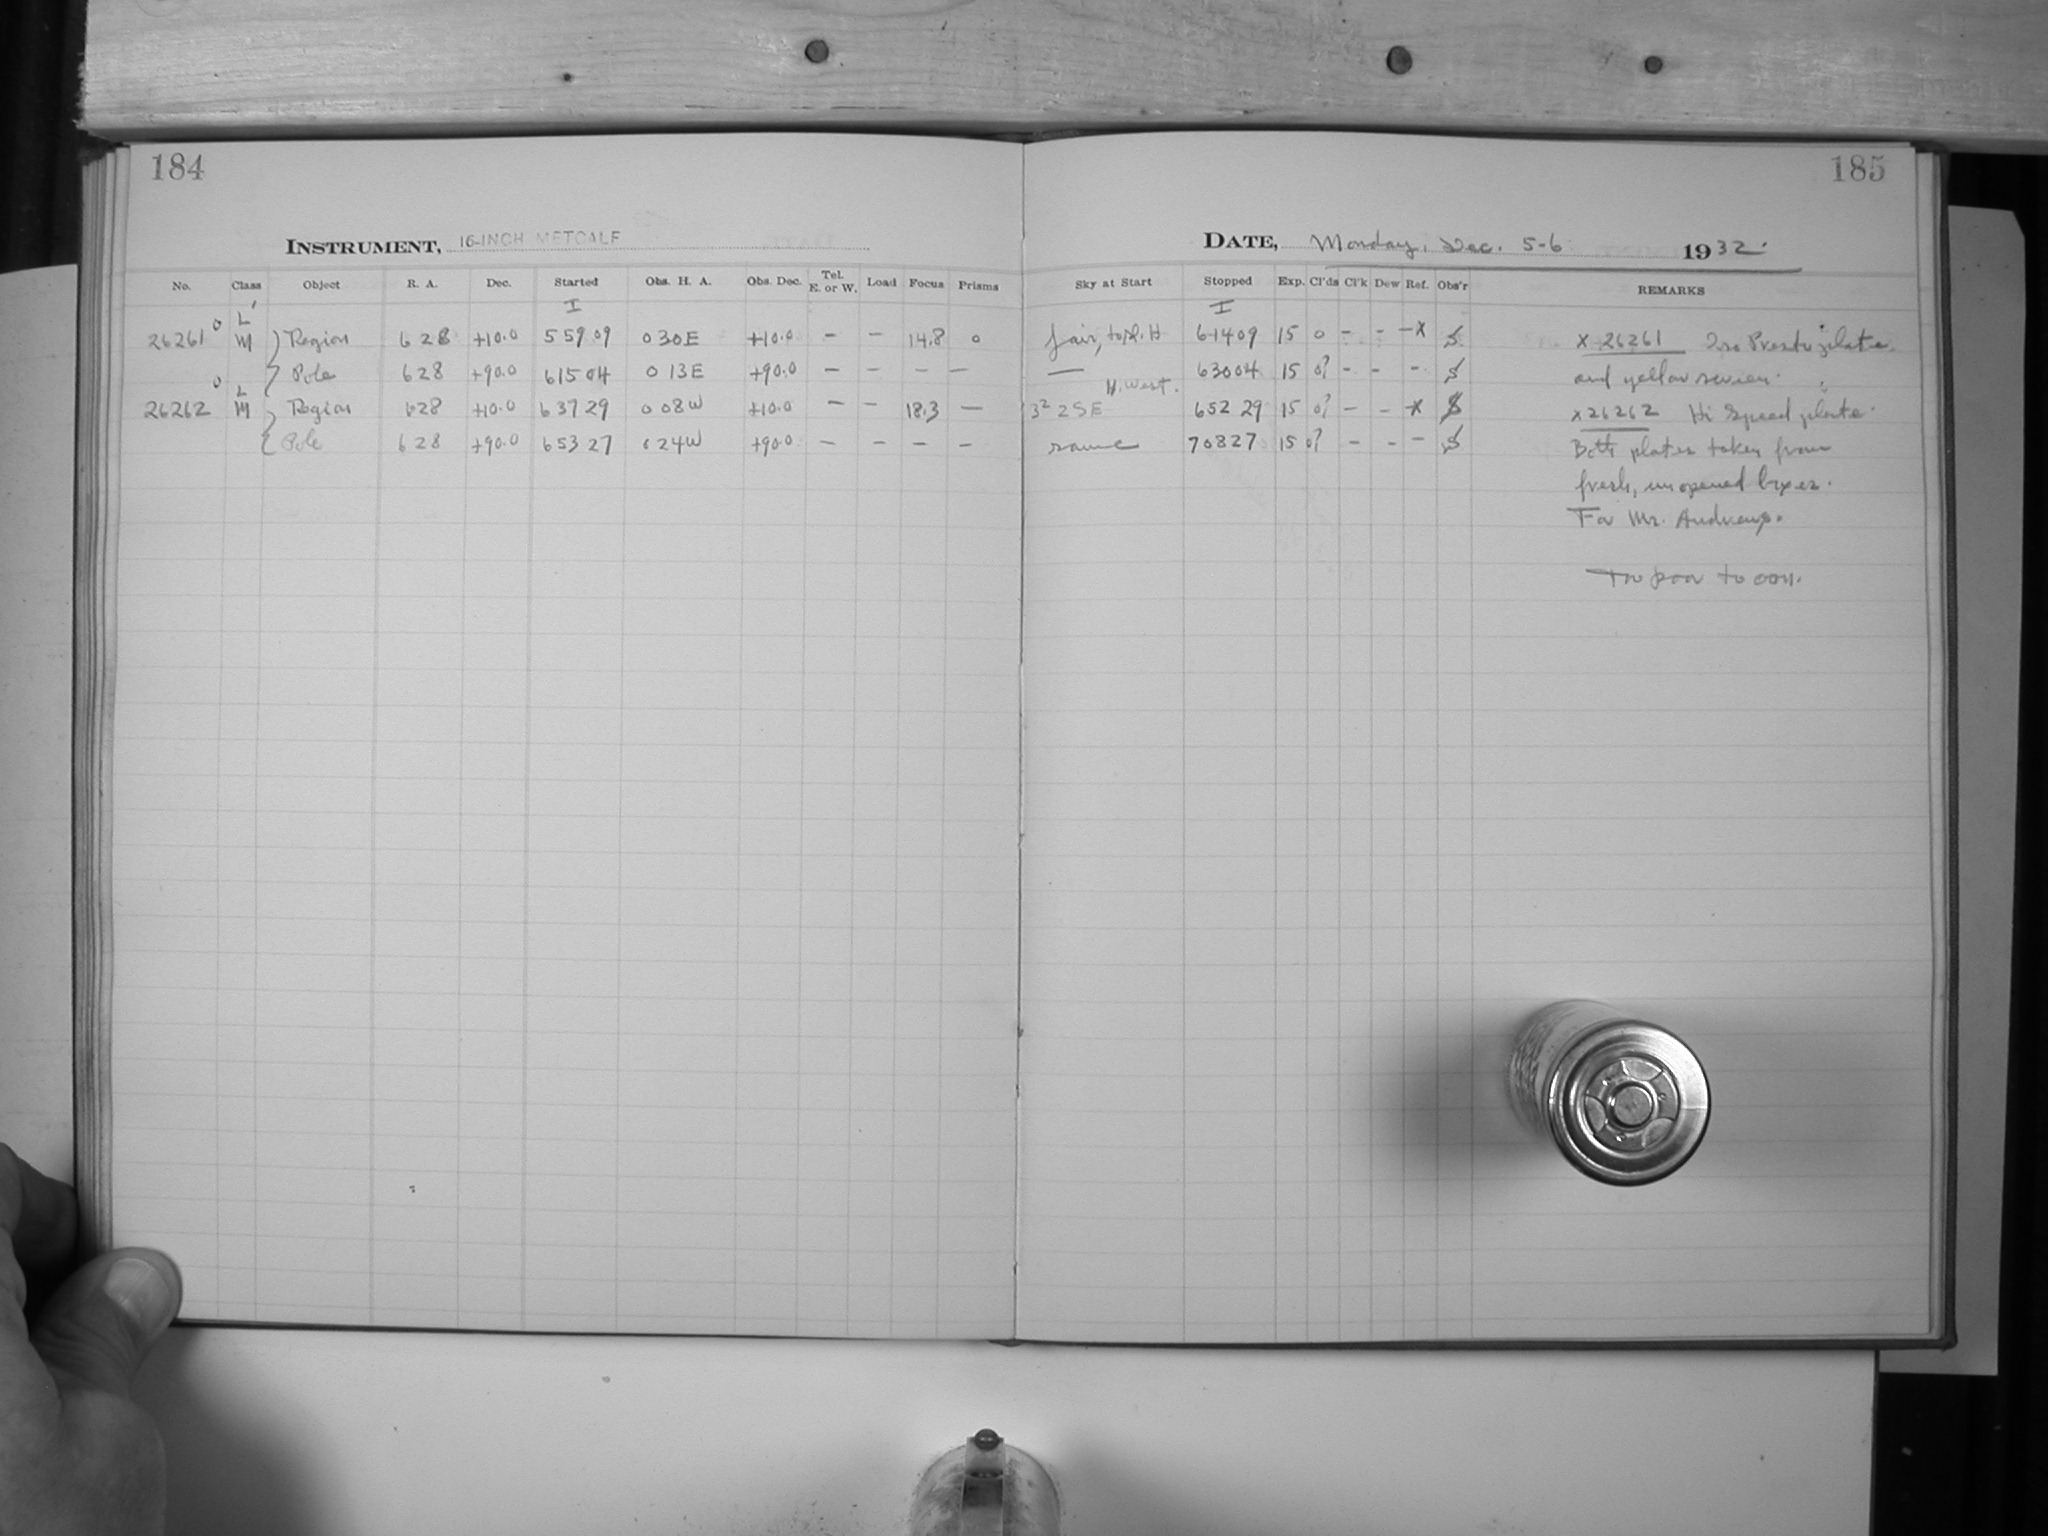 184
185
INSTRUMENT, 16-INCH METCALF
DATE, Monday, Dec. 5-6 1932.
No. Class Object R. A. Dec. Started Obs. H. A. Obs. Dec. Tel. E. or W. Load Focus Prisms Sky at Start Stopped Exp. Cl'ds Cl'k Dew Ref. Obs'r REMARKS
I I
L
26261 0 M Region 6 28 +10.0 5 59 09 0 30 E +10.0 — — 14.8 0 fair, H 6 14 09 15 0 - - -x S x 26261 Iso Presto plate
Pole 6 28 +90.0 6 15 04 0 13 E +90.0 — — — — — 6 30 04 15 0? - - - S and yellow screen.
L H. West.
26262 0 M Region 6 28 +10.0 6 37 29 0 08 W +10.0 — — 18.3 — 3² 2 SE 6 52 29 15 0? — - -x S x 26262 Hi Speed plate.
Pole 6 28 +90.0 6 53 27 0 24 W +90.0 — — — — same 7 08 27 15 0? - - - S Both plates taken from
fresh, unopened boxes.
For Mr. Andrews.
Too poor to con.